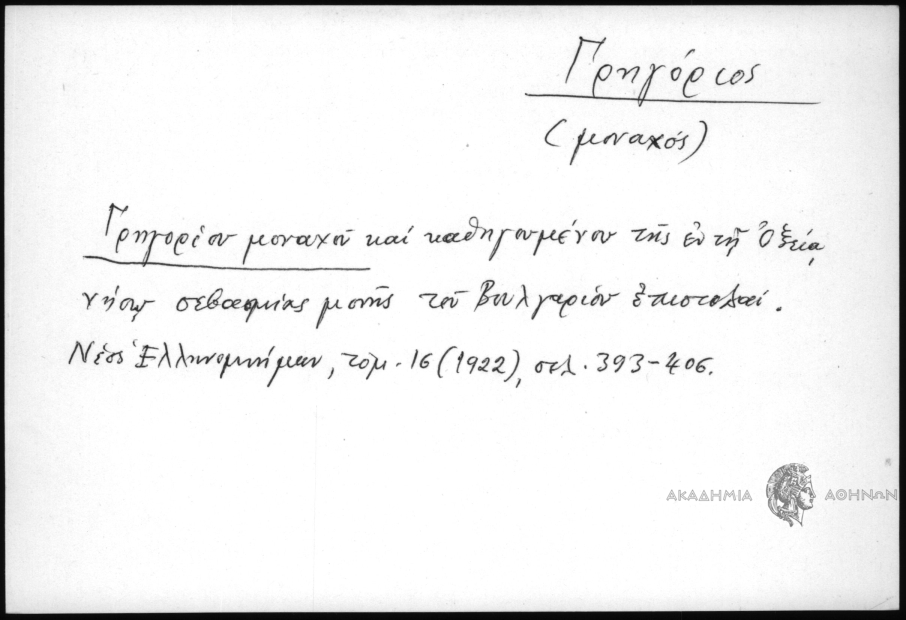 Γρηγόριος
(μοναχός)
Γρηγορίου μοναχοῦ καί καθηγουμένου τῆς ἐν τῇ Ὀξείᾳ
νήσῳ σεβασμίας μονῆς τοῦ Βουλγαρίου ἐπιστολαί.
Νέος Ἑλληνομνήμων, τόμ. 16 (1922), σελ. 393-406.
ΑΚΑΔΗΜΙΑ ΑΘΗΝΩΝ